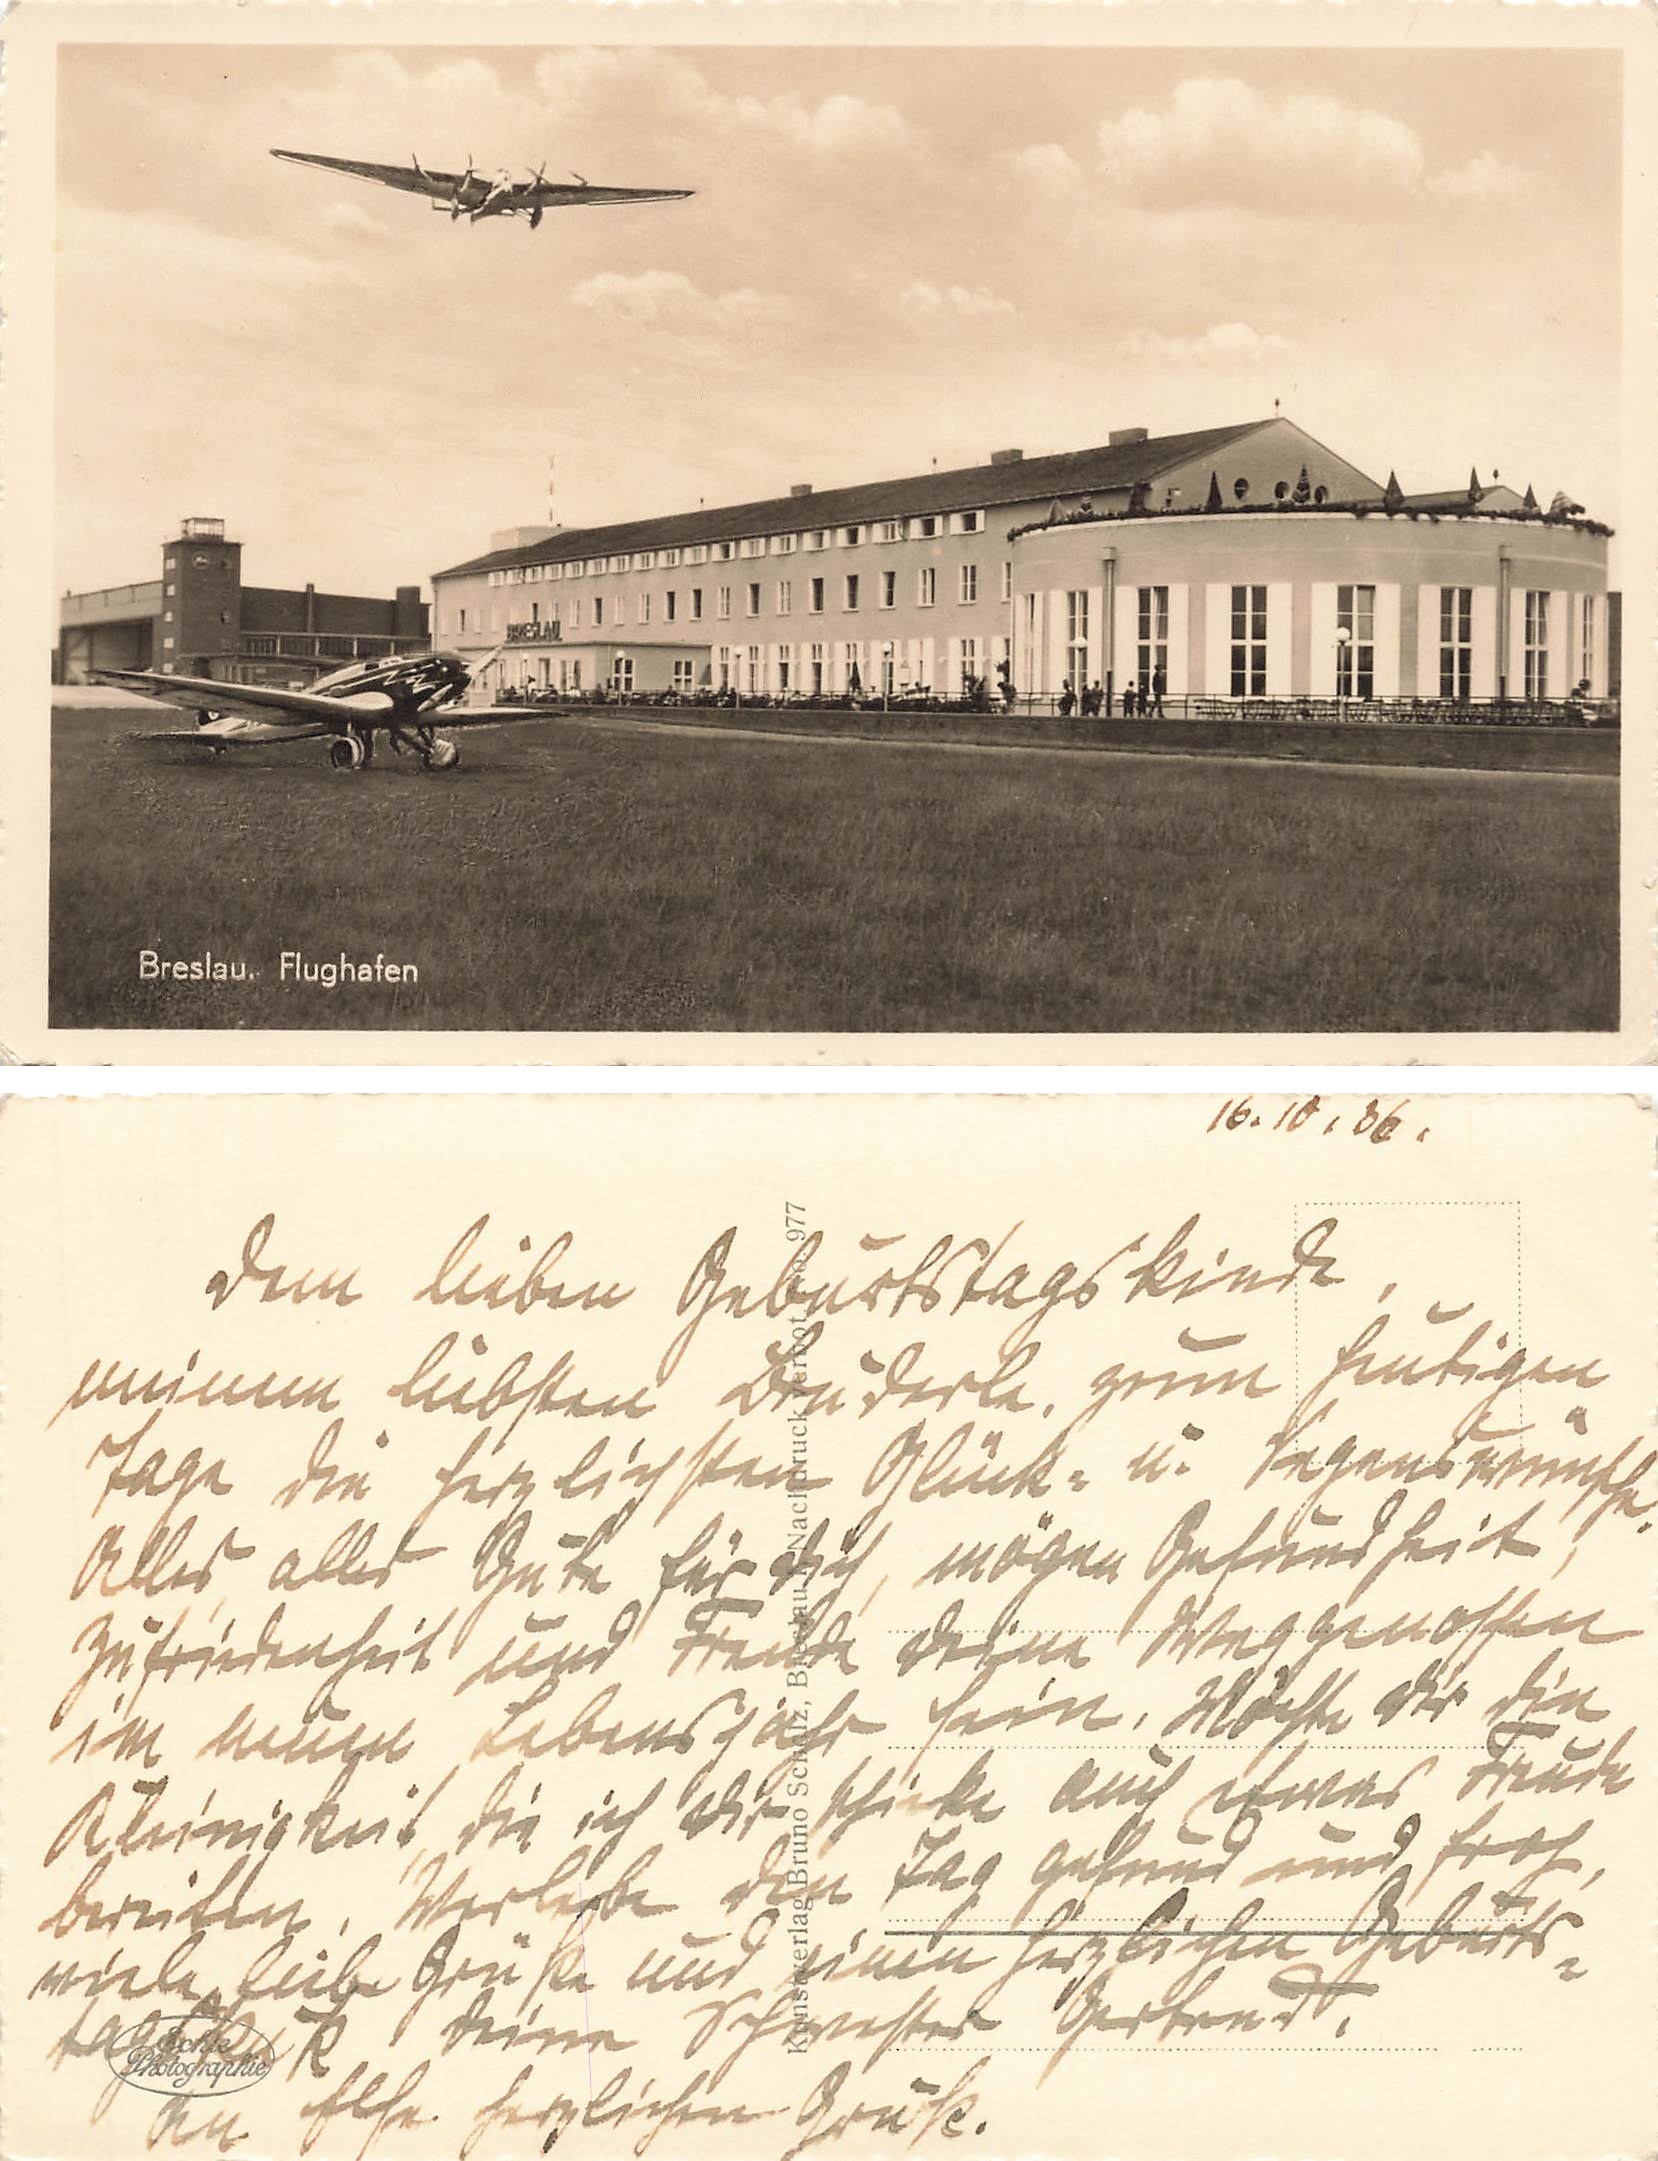 BRESLAU
Breslau. Flughafen
16.10.36.
Dem lieben Geburtstagskinde,
meinem liebsten Bruderle, zum heutigen
Tage die herzlichsten Glück- u. Segenswünsche.
Alles, alles Gute für Dich, mögen Gesundheit,
Zufriedenheit und Freude Deine Weggenossen
im neuen Lebensjahr sein. Möchte Dir die
Kleinigkeit, die ich Dir schicke auch etwas Freude
bereiten. Verlebe den Tag gesund und froh,
viele liebe Grüße und einen herzlichen Geburts-
Deine Schwester Gertrud.
An Else herzlichen Gruß.
Kunstverlag Bruno Scholz, Breslau 1, Nachdruck verboten, No. 977
Echte
Photographie